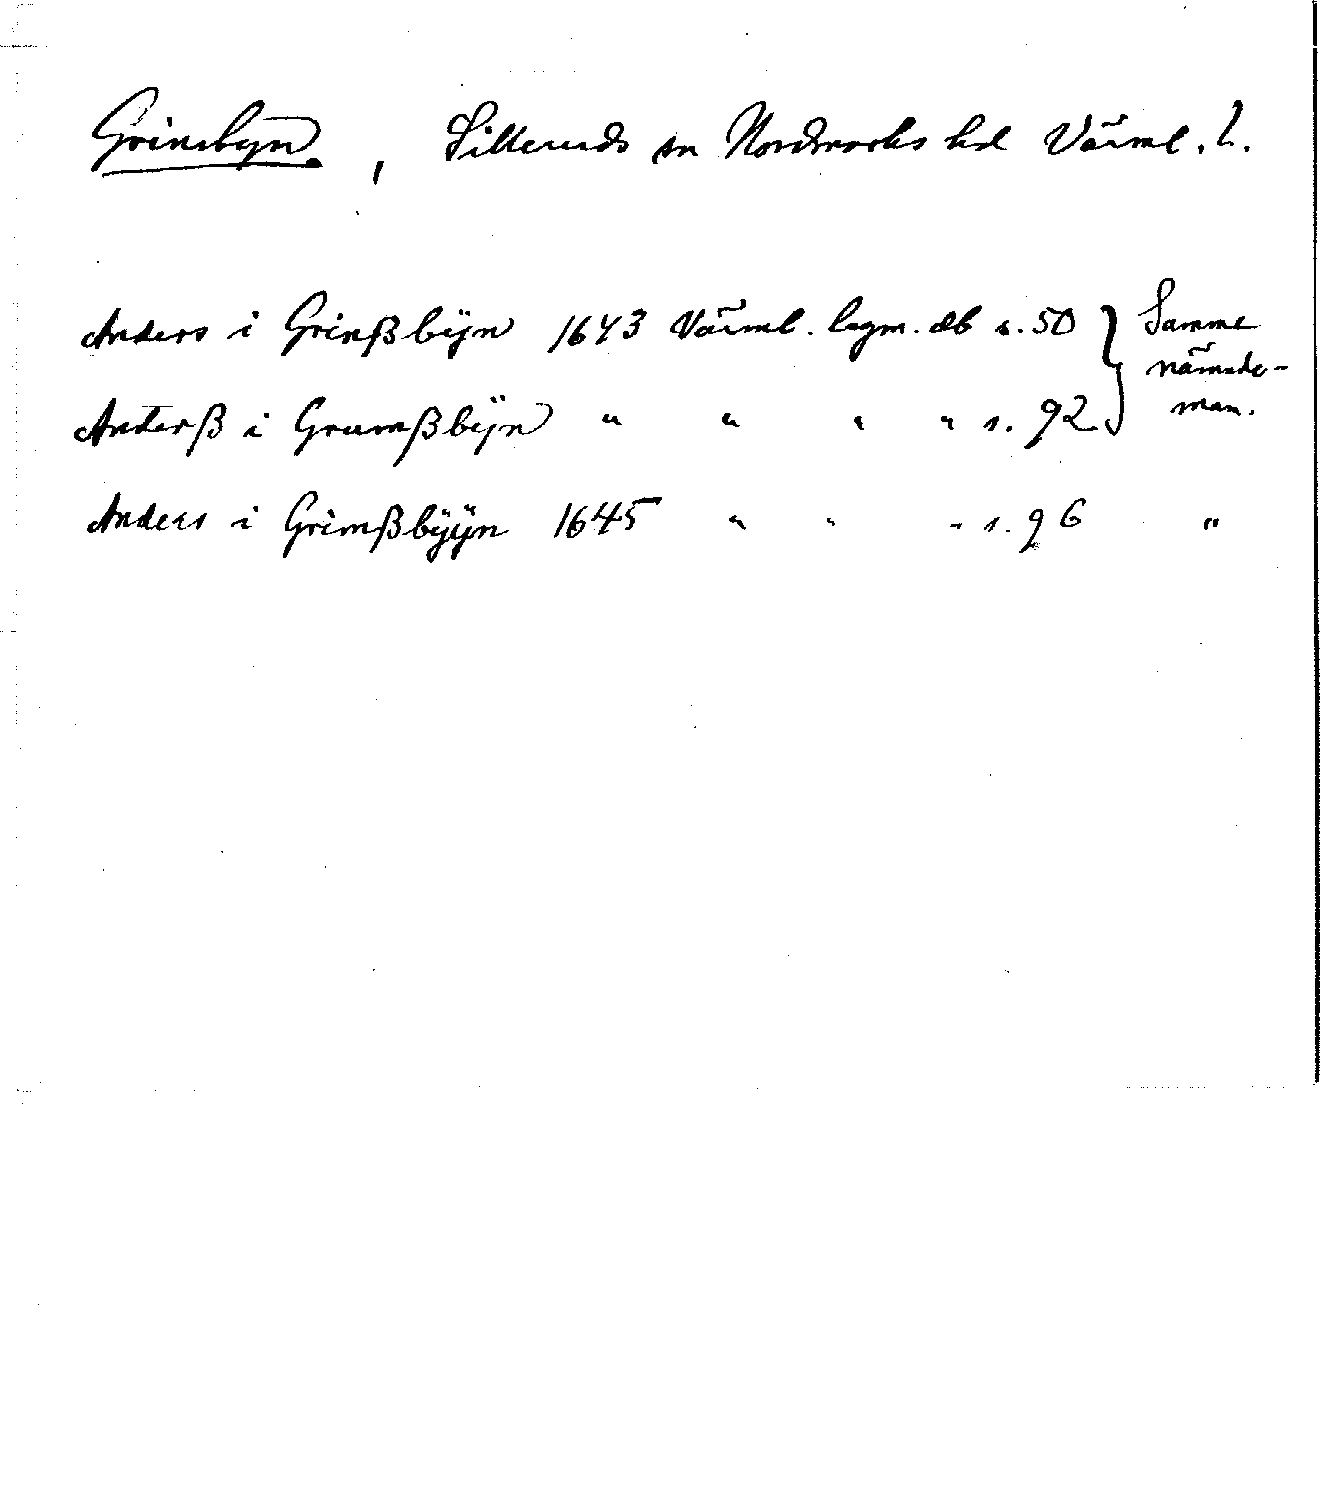 Grimsbyn, Silleruds sn Nordmarks hd Värml. l.
Anders i Grinßbÿn 1643 Värml. lagm. db s. 50 } Samma
nämnde-
Anderß i Grumßbÿn " " " " s. 92 man.
Anders i Grimßbÿÿn 1645 " " " s. 96 "